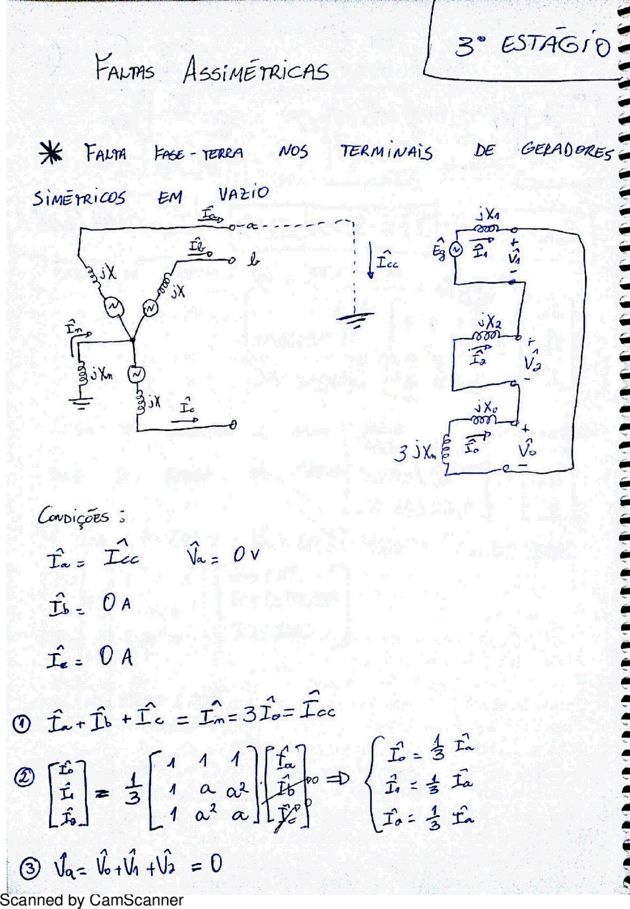 3º ESTÁGIO
FALTAS ASSIMÉTRICAS
* FALTA FASE-TERRA NOS TERMINAIS DE GERADORES
SIMÉTRICOS EM VAZIO
Îa a
Îb b
jX
jX
Îcc
În
jXn
jX
Îc
jX1
Êg
Î1
+
V̂1
-
jX2
Î2
+
V̂2
-
jX0
3jXn
Î0
+
V̂0
-
CONDIÇÕES:
Îa = Îcc V̂a = 0 V
Îb = 0 A
Îc = 0 A
① Îa + Îb + Îc = În = 3Î0 = Îcc
② [Î0 Î1 Î2] = 1/3 [1 1 1; 1 a a²; 1 a² a] [Îa Îb Îc] 0 0 ⇒ { Î0 = 1/3 Îa
Î1 = 1/3 Îa
Î2 = 1/3 Îa
③ V̂a = V̂0 + V̂1 + V̂2 = 0
Scanned by CamScanner